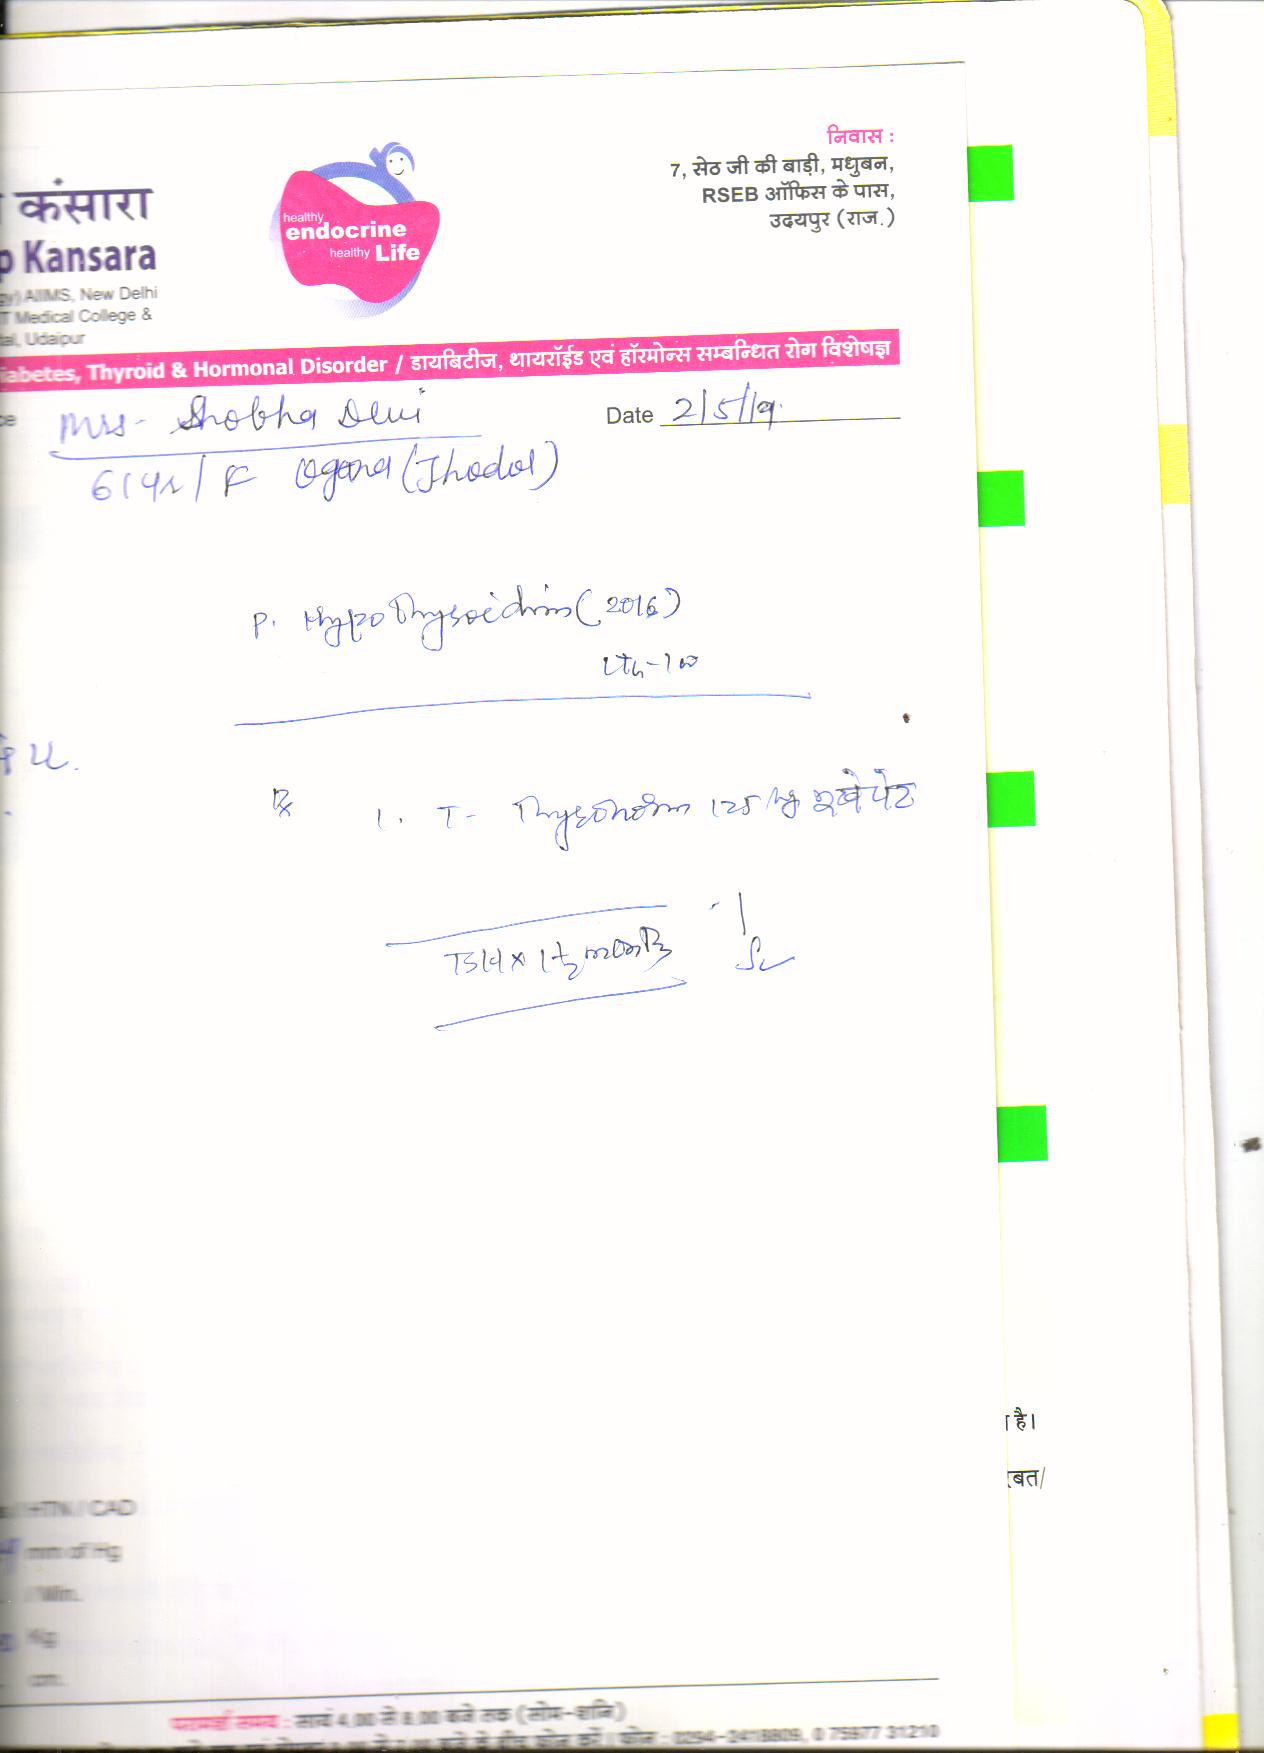 निवास :
7, सेठ जी की बाड़ी, मधुबन,
RSEB ऑफिस के पास,
उदयपुर (राज.)
कंसारा
Kansara
AIIMS, New Delhi
Medical College &
Udaipur
healthy
endocrine
healthy Life
Diabetes, Thyroid & Hormonal Disorder / डायबिटीज, थायरॉईड एवं हॉरमोन्स सम्बन्धित रोग विशेषज्ञ
Mrs- Shobha Devi
Date 2/5/19.
61yr/F Ogana (Jhadol)
P. Hypothyroidism (2016)
Rx 1. T- Thyronorm 125 µg
TSH x
है।
HTN / CAD
mm of Hg
/ Min.
Kg
cm.
परामर्श समय : सायं 4.00 से 8.00 बजे तक (सोम-शनि)
फोन : 0294-2418809, 0 75977 31210